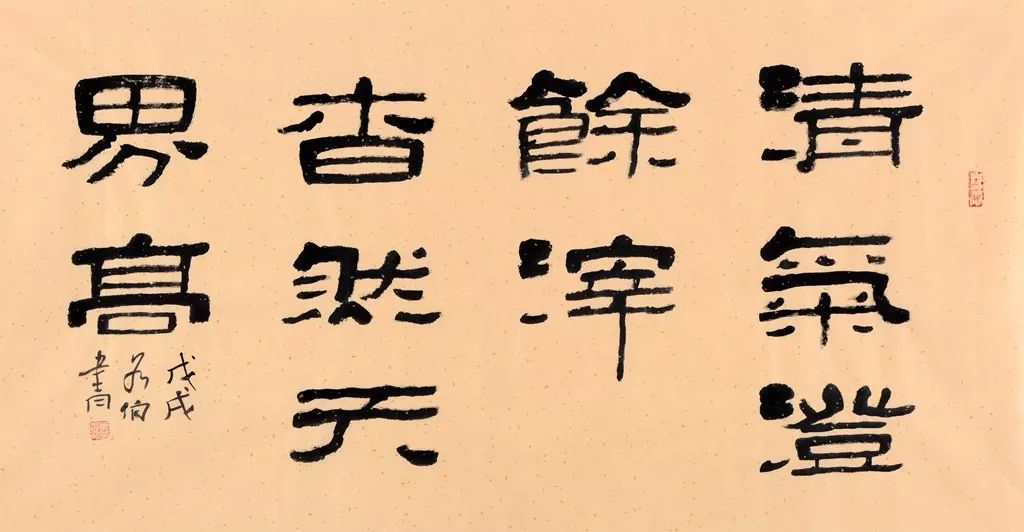 清氣澄
餘滓
杳然天
界高
戊戌
書